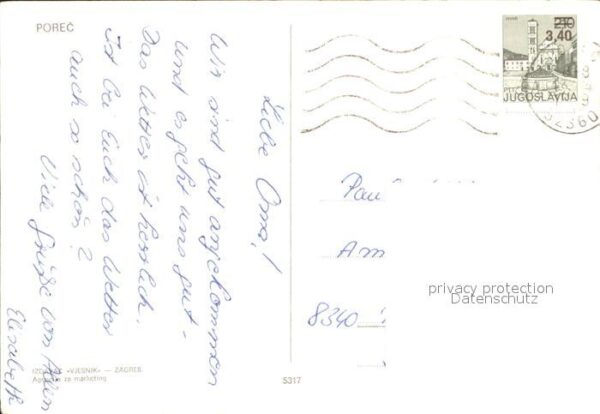 POREČ
Liebe Oma!
Wir sind gut angekommen
und es geht uns gut -
Das Wetter ist herrlich.
Ist bei Euch das Wetter
auch so schön?
Viele Grüße von Allen
Elisabeth
IZDAJE «VJESNIK» — ZAGREB
Agencija za marketing
5317
2,10
3,40
JUGOSLAVIJA
52360
Pau
Am
8340
privacy protection
Datenschutz